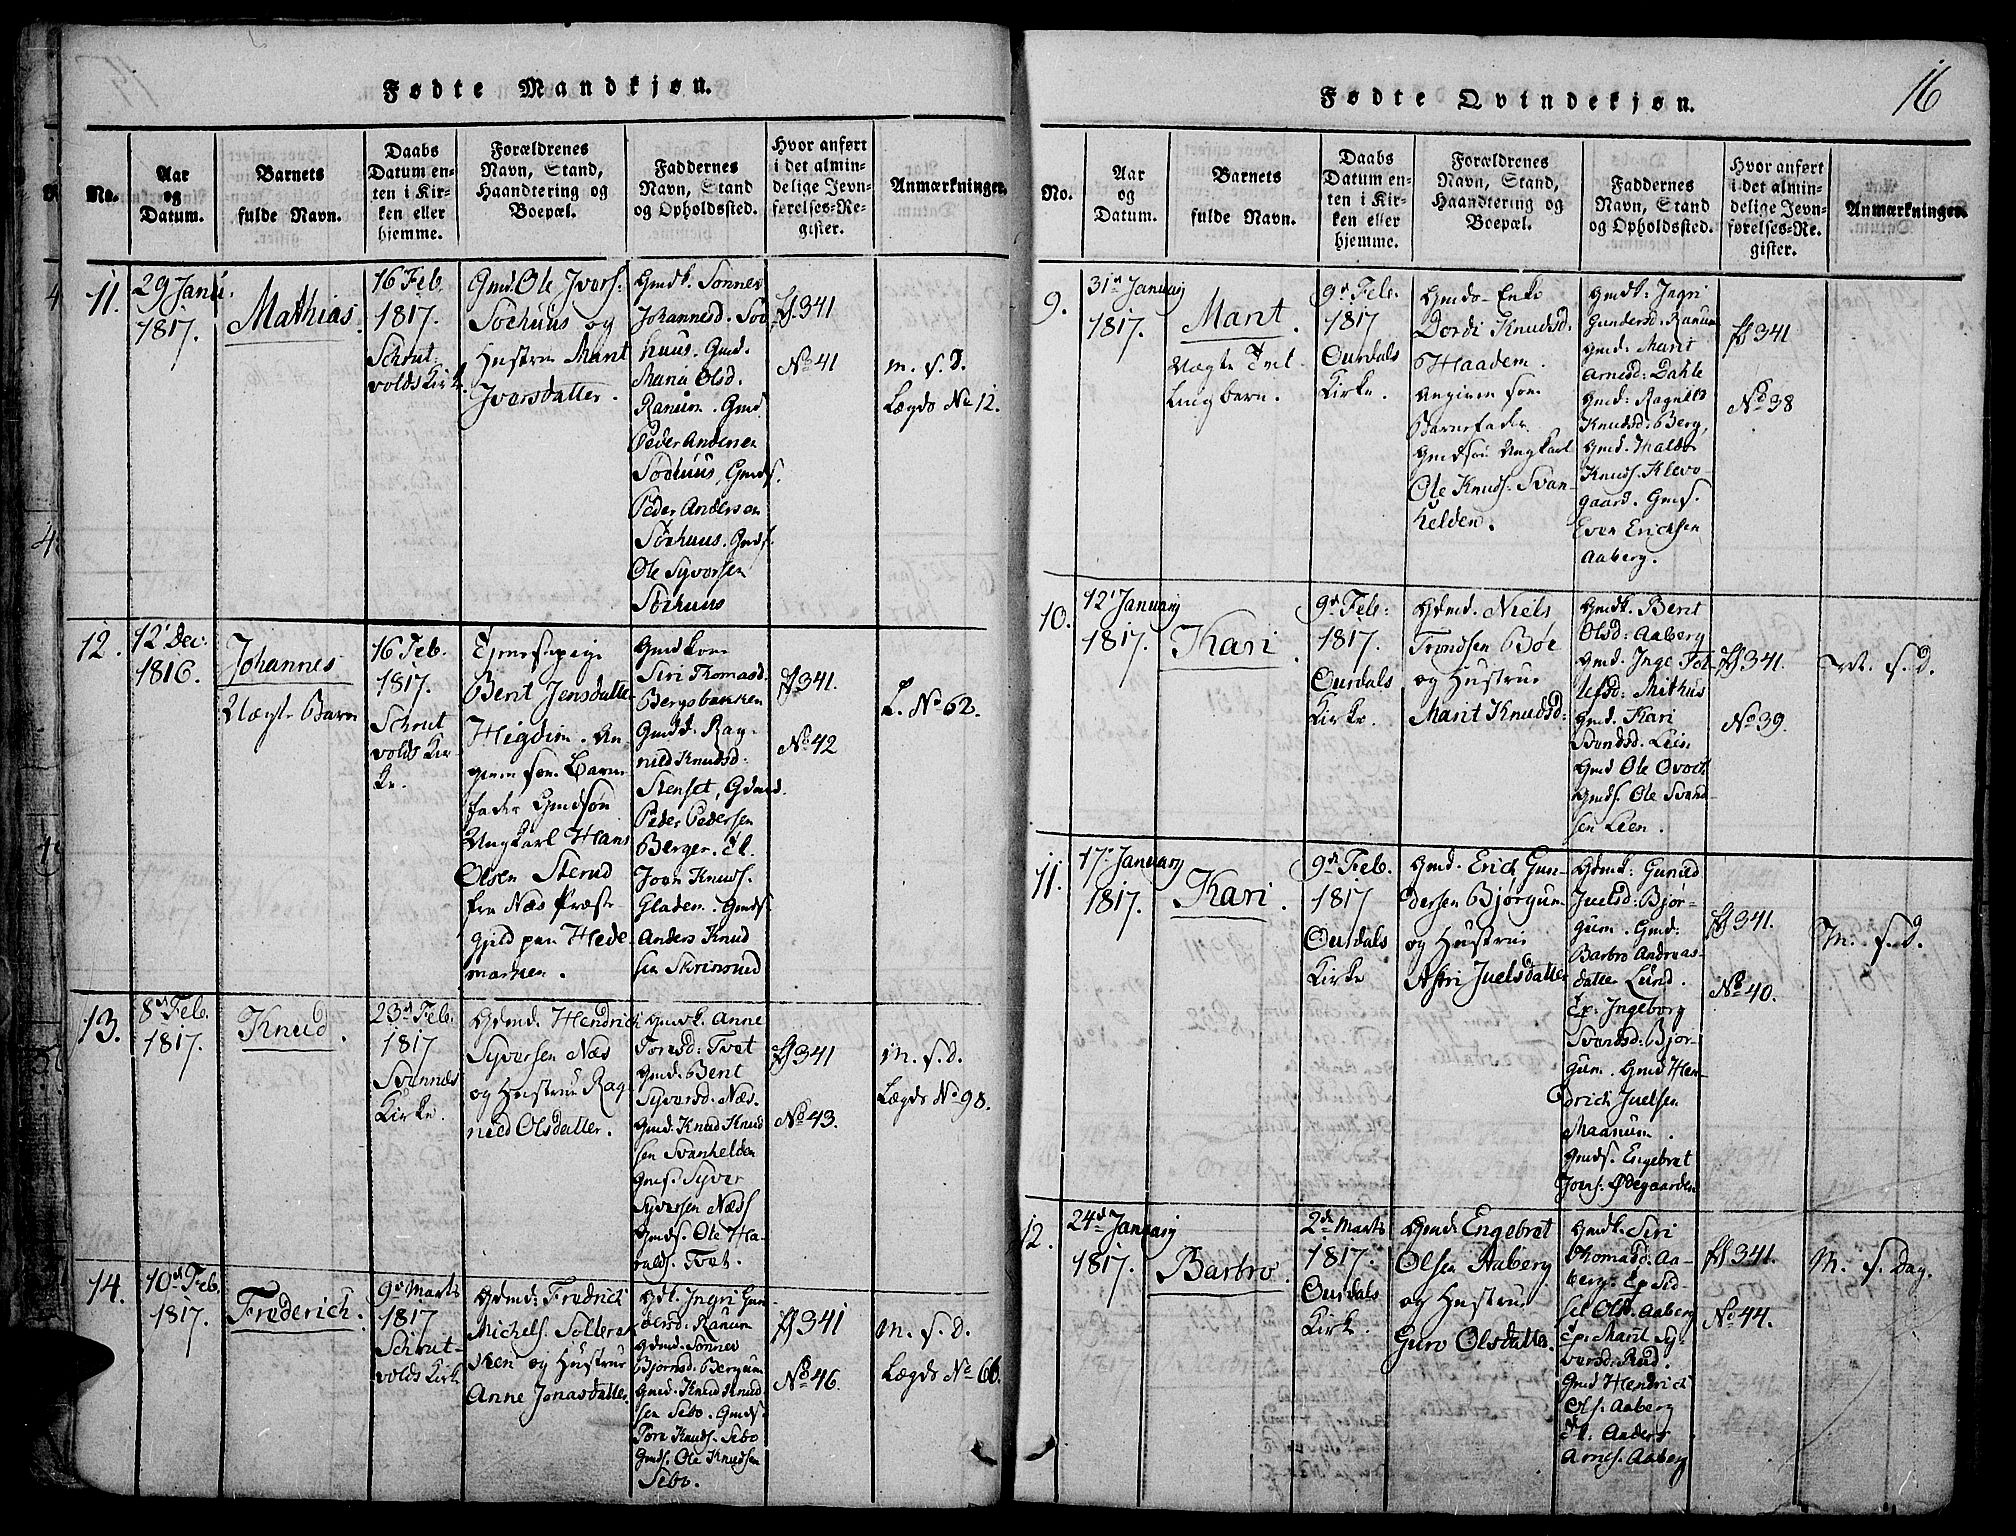 Fødte Mandkjøn.
No.
Aar
og
Datum.
Barnets
fulde Navn.
Daabs
Datum en-
ten i Kir-
ken eller
hjemme.
Forældrenes
Navn, Stand,
Haandtering og
Boepæl.
Faddernes
Navn, Stand
og Opholdssted.
Hvor anført
i det almin-
delige Jevn-
førelses-Re-
gister.
Anmærkninger.
11.
29 Janu.
1817.
Mathias.
16 Feb.
1817.
Schrut:
volds Kirk
Gmd. Ole Ivers:
Sørhuus og
Hustrue Marit
Iversdatter.
Gmdk. Sønnev
Johannesd. Sør
huus. Gmd.
Maria Olsd.
Ranum. Gmd
Peder Andersen
Sørhuus, Gmds.
Peder Andersen
Sørhuus. Gmds.
Ole Syversen
Sørhuus
fJ 341
No 41
m. f. D.
Lægds No 12.
12.
12' Dec:
1816.
Johannes
Uægte Barn
16 Feb.
1817.
Schrut
volds Kir
ke.
Tjenestepige
Berit Jensdatter
Høgdin. An
given som Barne
fader Gmdsøn
Ungkarl Hans
Olsen Sterud
fra Næs Præste
Gjeld paa Hede
marken.
Gmdkone
Siri Thomasd
Bergsbakken
Gmdk. Rag-
nild Knudsd.
Stenset, Gdmd.
Peder Pedersen
Berger.
Joen Knuds.
Gladen. Gmds.
Anders Knud
sen Skrinsrud
fJ 341.
No 42
L. No 62.
13.
8de Feb.
1817.
Knud.
23de Feb.
1817
Svennæs
Kirke.
Gdmd. Hendrich
Syversen Næs
og Hustrue Rag-
nild Olsdatter.
Gmdk. Anne
Toresd: Tvet
Gmd. Berit
Syversd. Næs.
Gmd. Knud Knud
sen Svanhelden
Gms. Syver
Syversen Næs
Gmds. Ole Ha-
ralds. Tvet.
fJ 341
No 43.
M. f. D.
Lægds No 98.
14.
10de Feb
1817.
Frederich.
9de Marts
1817
Schrut-
volds Kirk
Gdmd: Fredrich
Michels. Sollera
ken og Hustrue
Anne Jonasdatter
Gdk. Ingri Gun
dersd: Ranum
Gdmd. Sønnev
Bjørnsd: Bergum
Gmd. Knud Knud
sen Sebo. Gmds.
Tore Knuds. Sebo
Gmds. Ole Knudsen
Sebo.
fJ 341
No 46.
M. f. D.
Lægds No 66.
Fødte Qvindekjøn.
16
No.
Aar
og
Datum.
Barnets
fulde Navn.
Daabs
Datum en-
ten i Kir-
ken eller
hjemme.
Forældrenes
Navn, Stand,
Haandtering og
Boepæl.
Faddernes
Navn, Stand
og Opholdssted.
Hvor anført
i det almin-
delige Jevn-
førelses-Re-
gister.
Anmærkninger.
9.
31te January
1817.
Marit.
Uægte Tvil-
lingbarn.
9de Feb.
1817
Ourdals
Kirke.
Gmds-Enke
Dordi Knudsd.
Haadem.
Angiven som
Barnefader
Gmdsøn Ungkarl
Ole Knuds. Svan-
helden.
Gmdk: Ingri
Gundersd: Ranum
Gmd: Marit
Arnesd: Dahle
Gmd: Ragnild
Knudsd: Berg,
Gmd. Haldor
Knuds. Klevo-
gaard. Gms.
Even Erichsen
Aaberg.
fJ 341
No 38
10.
12' January
1817.
Kari
9de Feb:
1817.
Ourdals
Kirke.
Gdmd. Niels
Trondsen Bøe
og Hustrue
Marit Knudsd:
Gmdk. Berit
Olsd: Aaberg
Gmd. Inge Tol-
lefsd: Mithus
Gmd. Kari
Svendsd. Leen
Gmd Ole
Gmds. Ole Svend-
sen Leen.
fJ 341.
No 39.
M. f. D.
11.
17de January
1817.
Kari.
9de Feb.
1817
Ourdals
Kirke
Gmd. Erich Gun-
dersen Bjørgum
og Hustrue
Astri Juelsdatter
Gdmk: Gunild
Juelsd: Bjør-
gum. Gmd:
Barbro Andreas
datter Lund.
Ep. Ingeborg
Svendsd: Bjør-
gum. Gmd Hen-
drich Juelsen
Maanum.
Gmds. Engebret
Joens. Ødegaarden
fJ 341.
No 40.
M. f. D.
12.
24de January
1817.
Barbro.
2de Marts
1817.
Ourdals
Kirke.
Gmd: Engebret
Olsen Aaberg
og Hustrue
Guro Olsdatter
Gmdk. Siri
Thomasd. Aa-
berg. Ep. Sid-
sel Olsd. Aaberg
Ep. Marit Sy-
versd: Rud.
Gmd Hendrich
Ols. Aaberg
Anders
Arnes. Aaberg
fJ 341.
No 44.
M. f. Dag.